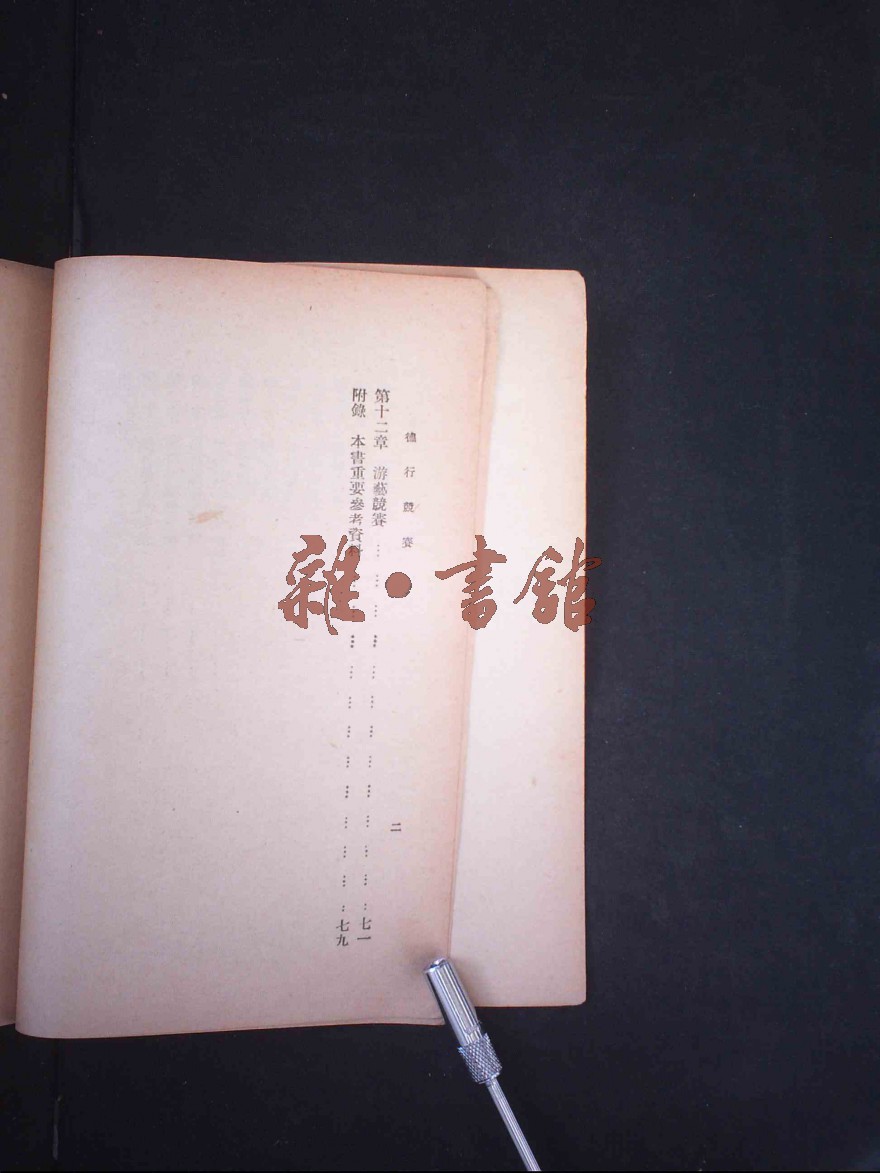 德行競賽
二
第十二章 游藝競賽…………………………………七一
附錄 本書重要參考資料…………………………………七九
雜·書館